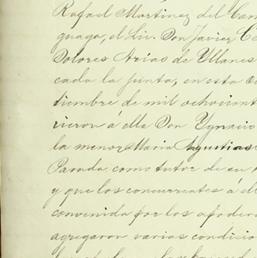 Rafael Martinez del Cam
guaga, el Lic. Don Javier C
Dolores Arias de Yllanes
cada la junta, en esta
tiembre de mil ochocient
rieron á ella Don Ygnacio
la menor Maria Agustias
Parada como tutor de su
y que los concurrentes á él
convenida por los apodera
agregaron varias condicio